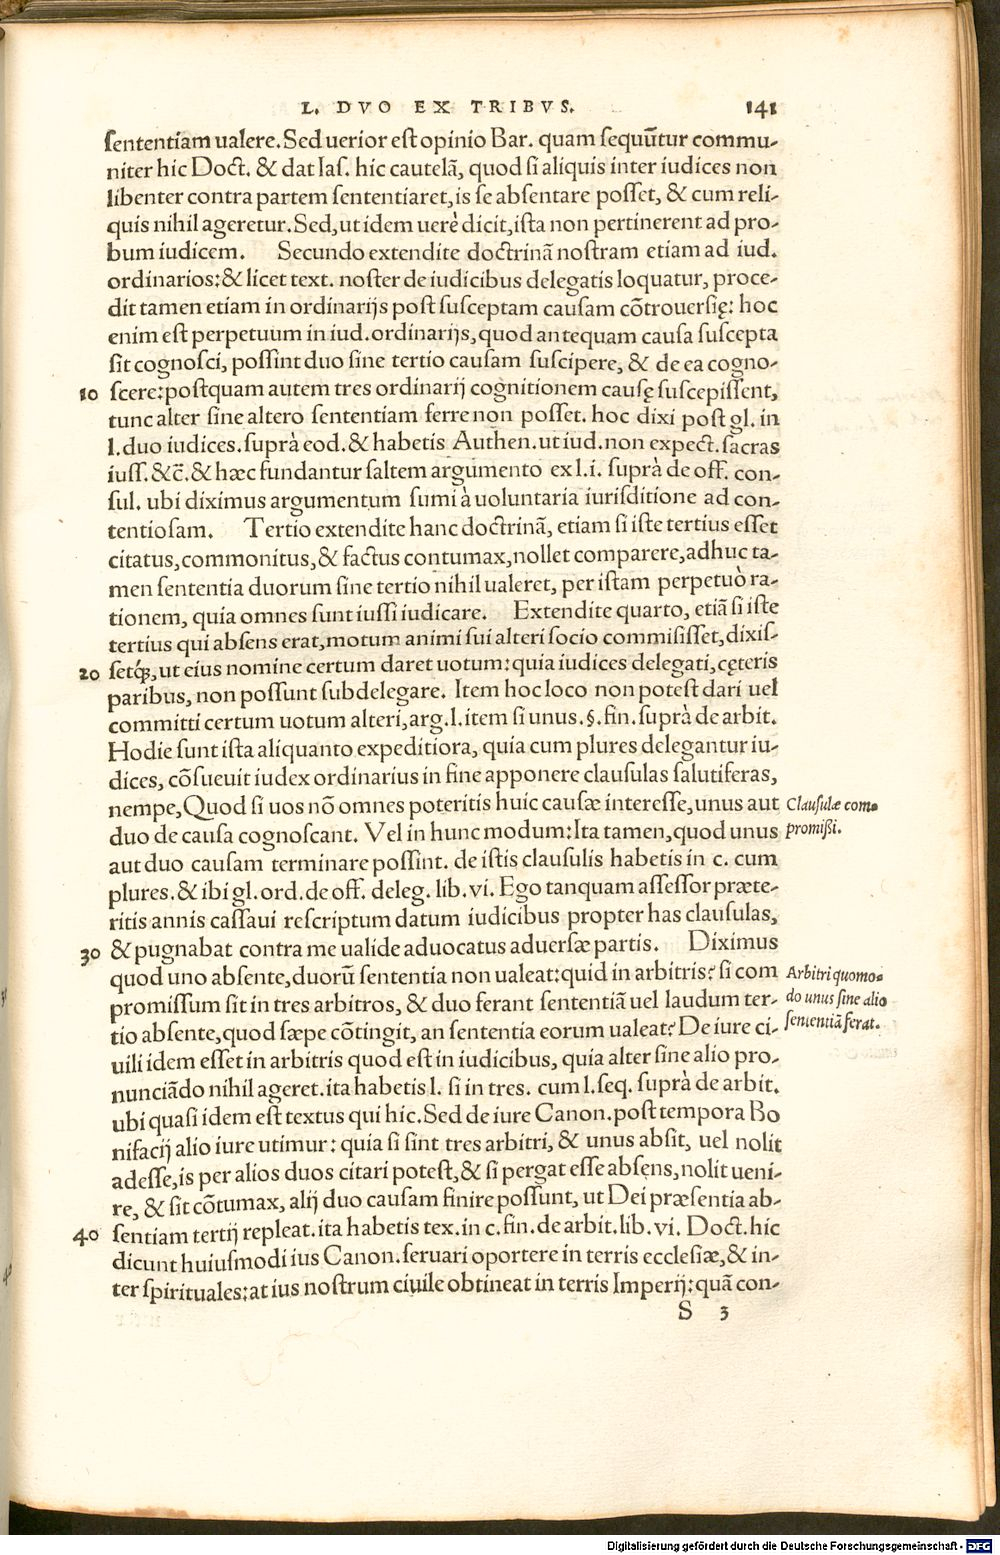 L. DVO EX TRIBVS. 141
ſententiam ualere. Sed uerior eſt opinio Bar. quam ſequūtur commu-
niter hic Doct. & dat Iaſ. hic cautelā, quod ſi aliquis inter iudices non
libenter contra partem ſententiaret, is ſe abſentare poſſet, & cum reli-
quis nihil ageretur. Sed, ut idem uerè dicit, iſta non pertinerent ad pro-
bum iudicem. Secundo extendite doctrinā noſtram etiam ad iud.
ordinarios: & licet text. noſter de iudicibus delegatis loquatur, proce-
dit tamen etiam in ordinarijs poſt ſuſceptam cauſam cōtrouerſię: hoc
enim eſt perpetuum in iud. ordinarijs, quod antequam cauſa ſuſcepta
ſit cognoſci, poſſint duo ſine tertio cauſam ſuſcipere, & de ea cogno-
10 ſcere: poſtquam autem tres ordinarij cognitionem cauſę ſuſcepiſſent,
tunc alter ſine altero ſententiam ferre non poſſet. hoc dixi poſt gl. in
l. duo iudices. ſuprà eod. & habetis Authen. ut iud. non expect. ſacras
iuſſ. &c̄. & hæc fundantur ſaltem argumento ex l. i. ſuprà de off. con-
ſul. ubi diximus argumentum ſumi à uoluntaria iuriſditione ad con-
tentioſam. Tertio extendite hanc doctrinā, etiam ſi iſte tertius eſſet
citatus, commonitus, & factus contumax, nollet comparere, adhuc ta-
men ſententia duorum ſine tertio nihil ualeret, per iſtam perpetuò ra-
tionem, quia omnes ſunt iuſſi iudicare. Extendite quarto, etiā ſi iſte
tertius qui abſens erat, motum animi ſui alteri ſocio commiſiſſet, dixiſ-
20 ſetq́ꝫ, ut eius nomine certum daret uotum: quia iudices delegati, cęteris
paribus, non poſſunt ſubdelegare. Item hoc loco non poteſt dari uel
committi certum uotum alteri, arg. l. item ſi unus. §. fin. ſuprà de arbit.
Hodie ſunt iſta aliquanto expeditiora, quia cum plures delegantur iu-
dices, cōſueuit iudex ordinarius in fine apponere clauſulas ſalutiferas,
nempe, Quod ſi uos nō omnes poteritis huic cauſæ intereſſe, unus aut Clauſulæ com-
duo de cauſa cognoſcant. Vel in hunc modum: Ita tamen, quod unus promiſsi.
aut duo cauſam terminare poſſint. de iſtis clauſulis habetis in c. cum
plures. & ibi gl. ord. de off. deleg. lib. vi. Ego tanquam aſſeſſor præte-
ritis annis caſſaui reſcriptum datum iudicibus propter has clauſulas,
30 & pugnabat contra me ualide aduocatus aduerſæ partis. Diximus
quod uno abſente, duorū ſententia non ualeat: quid in arbitris? ſi com Arbitri quomo-
promiſſum ſit in tres arbitros, & duo ferant ſententiā uel laudum ter- do unus ſine alio
tio abſente, quod ſæpe cōtingit, an ſententia eorum ualeat? De iure ci- ſententiā ferat.
uili idem eſſet in arbitris quod eſt in iudicibus, quia alter ſine alio pro-
nunciādo nihil ageret. ita habetis l. ſi in tres. cum l. ſeq. ſuprà de arbit.
ubi quaſi idem eſt textus qui hic. Sed de iure Canon. poſt tempora Bo
nifacij alio iure utimur: quia ſi ſint tres arbitri, & unus abſit, uel nolit
adeſſe, is per alios duos citari poteſt, & ſi pergat eſſe abſens, nolit ueni-
re, & ſit cōtumax, alij duo cauſam finire poſſunt, ut Dei præſentia ab-
40 ſentiam tertij repleat. ita habetis tex. in c. fin. de arbit. lib. vi. Doct. hic
dicunt huiuſmodi ius Canon. ſeruari oportere in terris eccleſiæ, & in-
ter ſpirituales: at ius noſtrum ciuile obtineat in terris Imperij: quā con-
S 3
Digitalisierung gefördert durch die Deutsche Forschungsgemeinschaft - DFG